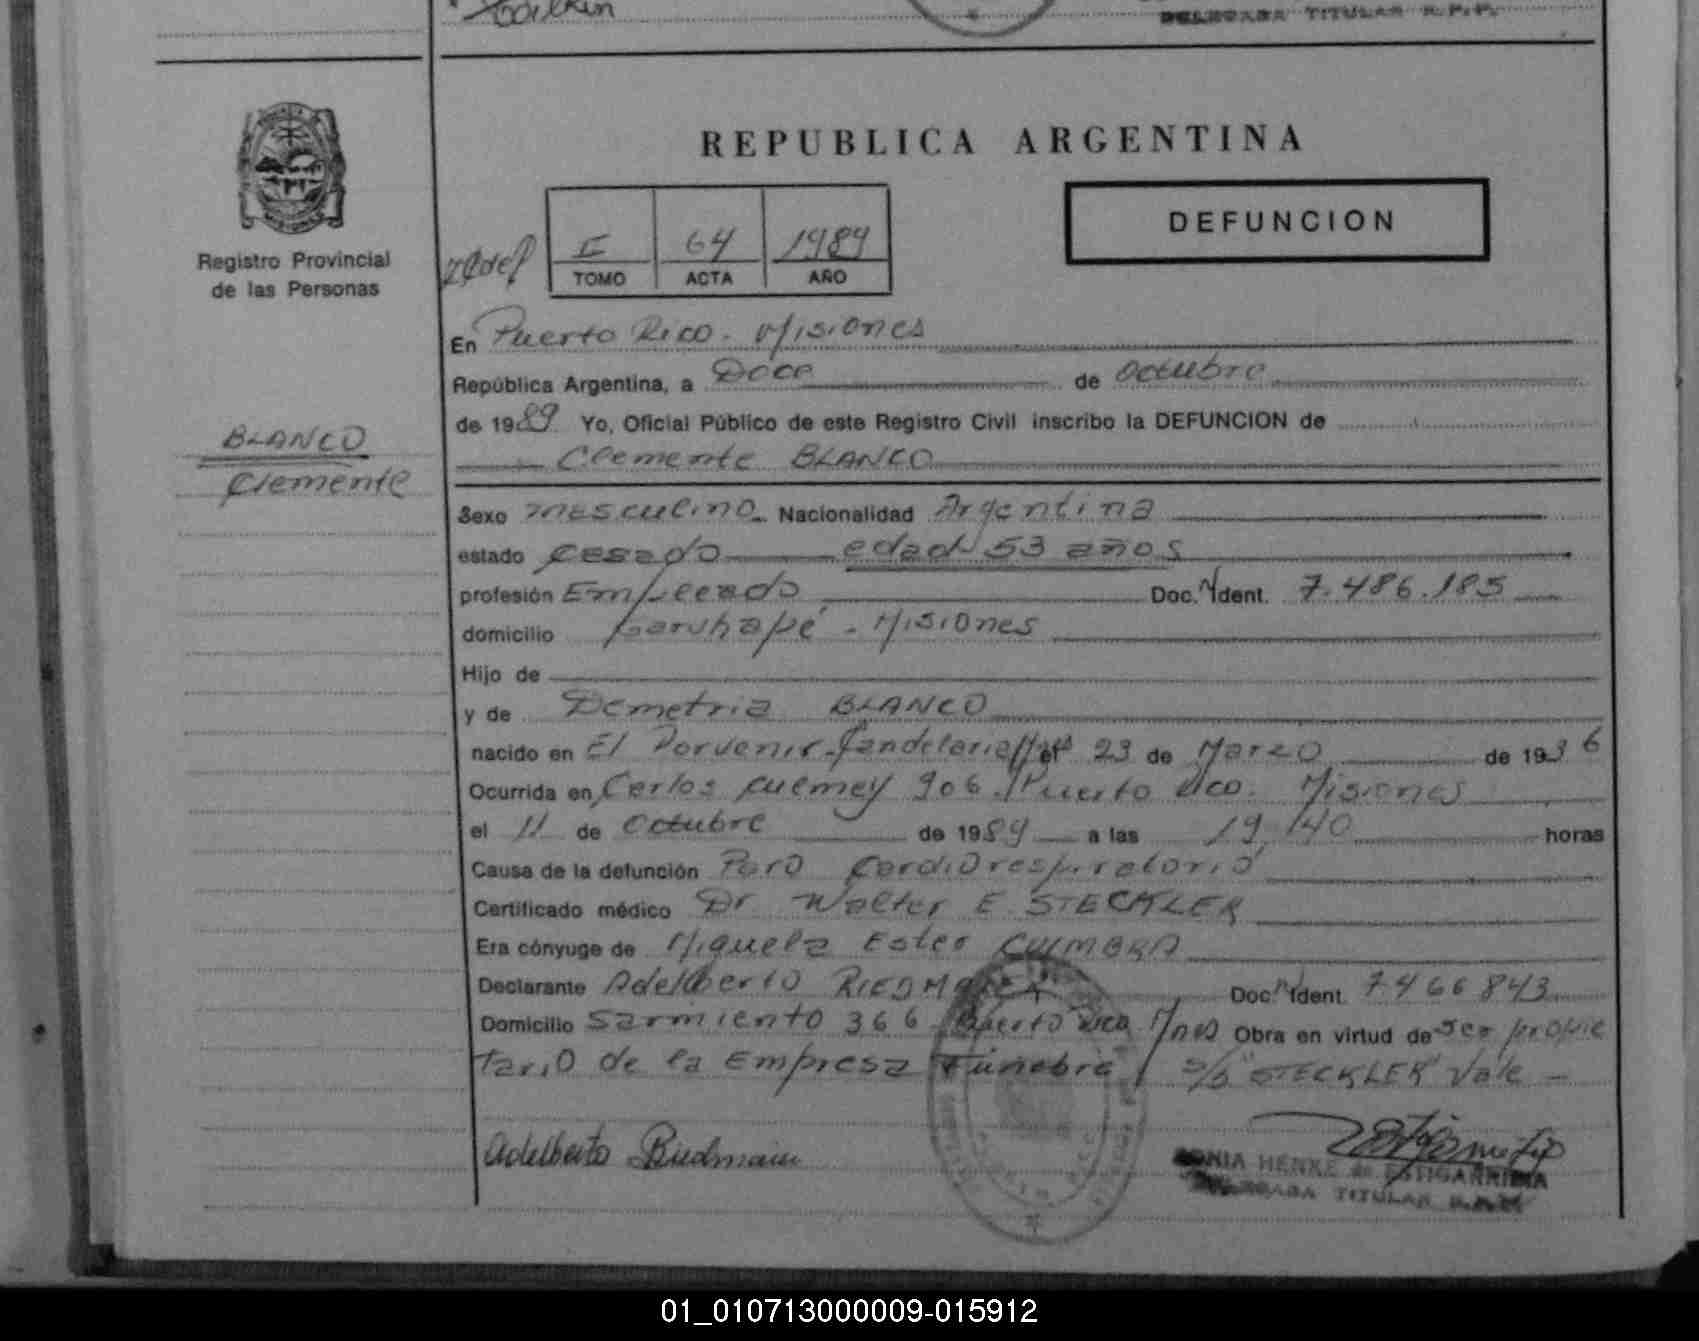 DELEGADA TITULAR R.P.P.
REPUBLICA ARGENTINA
DEFUNCION
Registro Provincial
de las Personas
II 64 1989
TOMO ACTA AÑO
En Puerto Rico - Misiones
República Argentina, a Doce de octubre
de 1989 Yo, Oficial Público de este Registro Civil inscribo la DEFUNCION de
Clemente BLANCO
BLANCO
Clemente
Sexo masculino Nacionalidad Argentina
estado Casado edad 53 años
profesión Empleado Doc. Ident. 7.486.185
domicilio Garuhapé - Misiones
Hijo de
y de Demetria BLANCO
nacido en El Porvenir - Candelaria el 23 de Marzo de 1936
Ocurrida en Carlos Culmey 906. Puerto Rico. Misiones
el 11 de Octubre de 1989 a las 19,40 horas
Causa de la defunción Paro Cardiorespiratorio
Certificado médico Dr Walter E STECKLER
Era cónyuge de Miguela Ester COIMBRA
Declarante Adelberto RIEDMAIER Doc. Ident. 7466843
Domicilio Sarmiento 366 Puerto Rico Mnes Obra en virtud de ser propie
tario de la Empresa Fúnebre / s/b "STECKLER" Vale -
Adelberto Riedmaier
SONIA HENKE de ESTIGARRIBIA
DELEGADA TITULAR R.P.P.
01_010713000009-015912